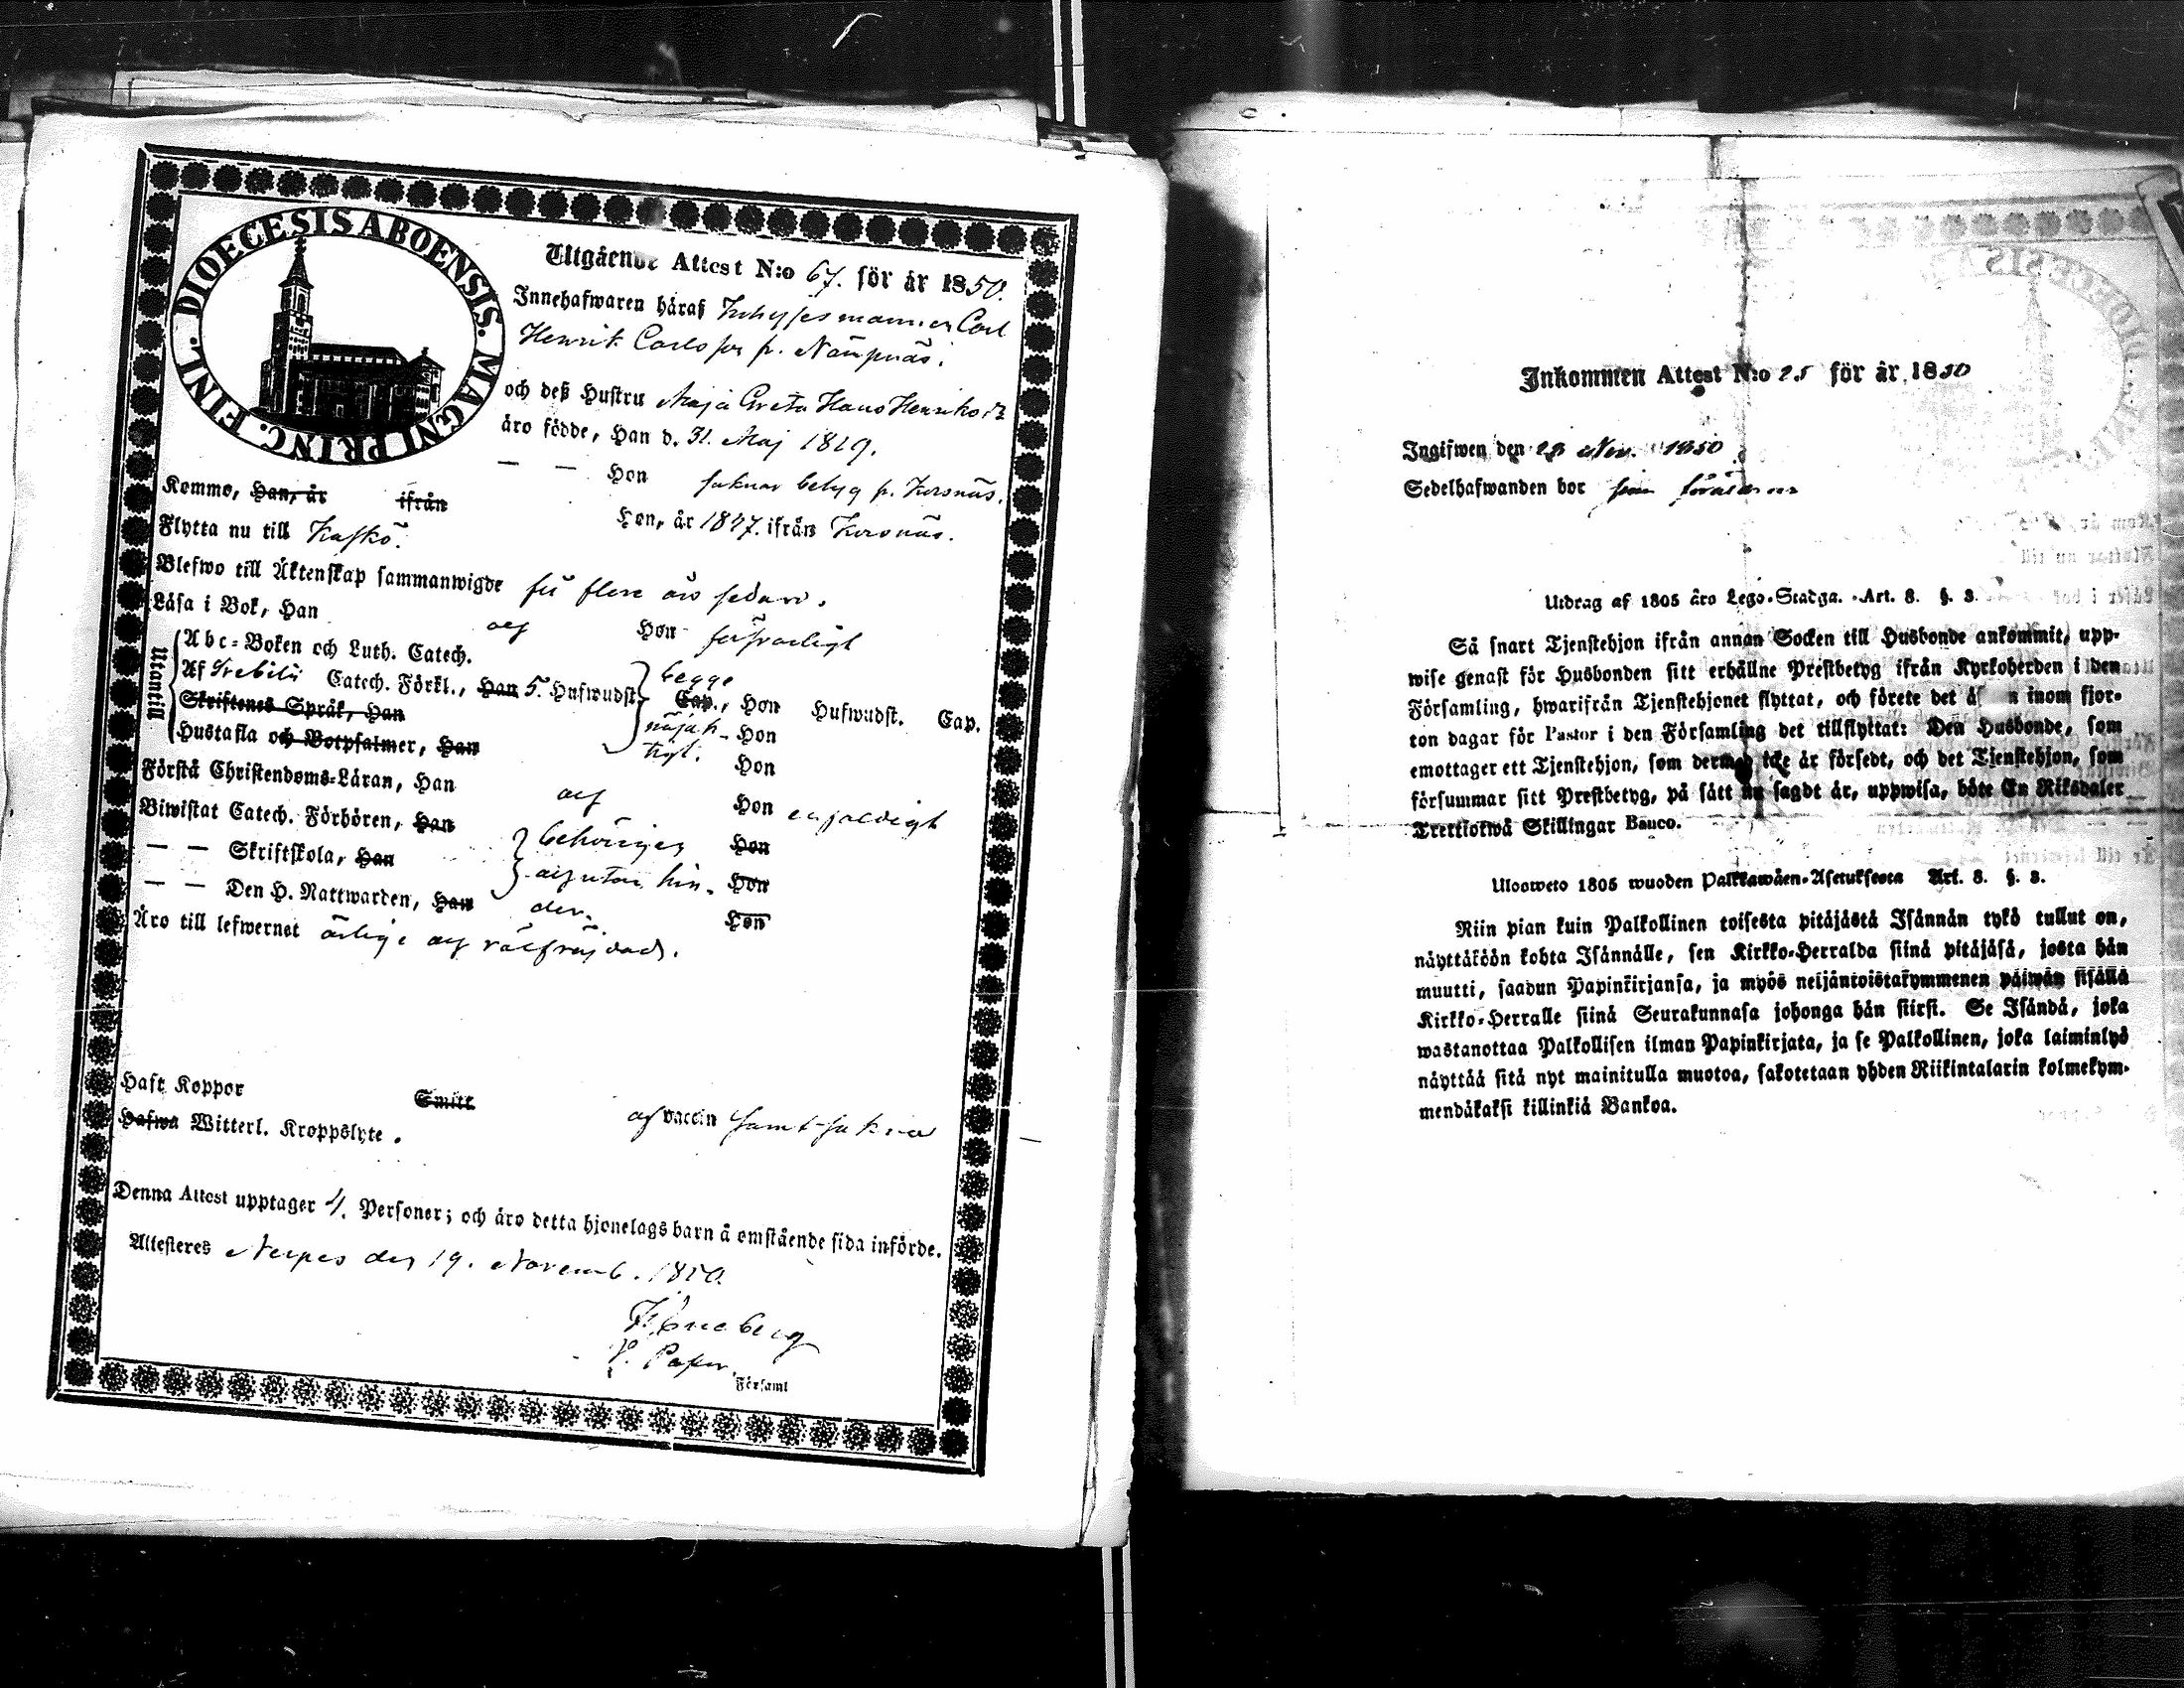 DIOECESIS ABOENSIS. MAGNI PRINC. FINL.
Utgående Attest N:o 67. för år 1850.
Innehafwaren häraf Inhysesmannen Carl
Henrik Carlsson fr. Nämpnäs.
och deß Hustru Maja Greta Hans Henriksdr
äro födde, Han d. 31. Maj 1819.
— — Hon saknar betyg fr. Korsnäs.
Kommo, Han, år ifrån
Hon, år 1847. ifrån Korsnäs.
Flytta nu till Kaskö.
Blefwo till Äktenskap sammanwigde för flere års sedan.
Läsa i Bok, Han och Hon försvarligt
Utantill
Abc-Boken och Luth. Catech.
Af Svebilii Catech. Förkl., Han 5. Hufwudst. Cap., Hon Hufwudst. Cap.
begge
Skriftenes Språk, Han Hon
nöjak-
Hustafla och Botpsalmer, Han Hon
tigt.
Förstå Christendoms-Läran, Han och Hon enfaldigt
Biwistat Catech. Förhören, Han behörigen Hon
— — Skriftskola, Han och utan hin- Hon
— — Den H. Nattwarden, Han der. Hon
Äro till lefwernet ärlige och välfrejdade.
Haft Koppor Smitt
af vaccin samt sakna
Hafwa Witterl. Kroppslyte.
Denna Attest upptager 4. Personer; och äro detta hjonelags barn å omstående sida införde.
Attesteres Nerpes den 19. Novemb. 1850.
V. Pastor.
Församl
Inkommen Attest N:o 25 för år 1850
Ingifwen den 23 Nov. 1850
Sedelhafwanden bor
Utdrag af 1805 års Lego-Stadga. Art. 8. §. 8.
Så snart Tjenstehjon ifrån annan Socken till Husbonde ankommit, upp-
wise genast för Husbonden sitt erhållne Prestbetyg ifrån Kyrkoherden i den
Församling, hwarifrån Tjenstehjonet flyttat, och förete det ä n inom fjor-
ton dagar för Pastor i den Församling det tillflyttat: Den Husbonde, som
emottager ett Tjenstehjon, som dermed icke är försedt, och det Tjenstehjon, som
försummar sitt Prestbetyg, på sätt nu sagdt är, uppwisa, böte En Riksdaler
Trettiotwå Skillingar Banco.
Ulosweto 1805 wuoden Palkkawäen-Asetuksesta Art. 8. §. 8.
Niin pian kuin Palkollinen toisesta pitäjästä Isännän tykö tullut on,
näyttäköön kohta Isännälle, sen Kirkko-Herralda siinä pitäjäsä, josta hän
muutti, saadun Papinkirjansa, ja myös neljäntoistakymmenen päiwän sisällä
Kirkko-Herralle siinä Seurakunnasa johonga hän siirsi. Se Isändä, joka
wastanottaa Palkollisen ilman Papinkirjata, ja se Palkollinen, joka laiminlyö
näyttää sitä nyt mainitulla muotoa, sakotetaan yhden Riikintalarin kolmekym-
mendäkaksi killinkiä Bankoa.